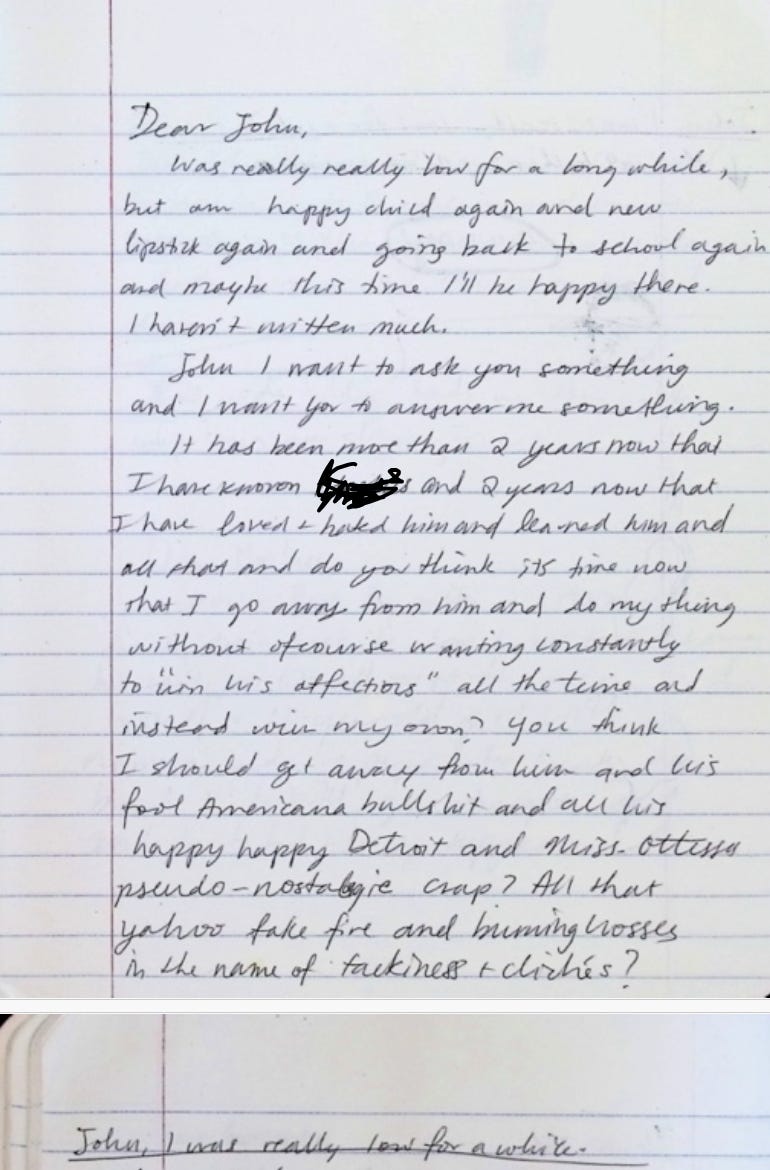 Dear John,
Was really really low for a long while,
but am happy child again and new
lipstick again and going back to school again
and maybe this time I'll be happy there.
I haven't written much.
John I want to ask you something
and I want you to answer me something.
It has been more than 2 years now that
I have known and 2 years now that
I have loved + hated him and learned him and
all that and do you think its time now
that I go away from him and do my thing
without ofcourse wanting constantly
to "win his affections" all the time and
instead win my own? You think
I should get away from him and his
fool Americana bullshit and all his
happy happy Detroit and Miss. Ottessa
pseudo-nostalgic crap? All that
yahoo fake fire and burning crosses
in the name of tackiness + clichés?
John, I was really low for a while.